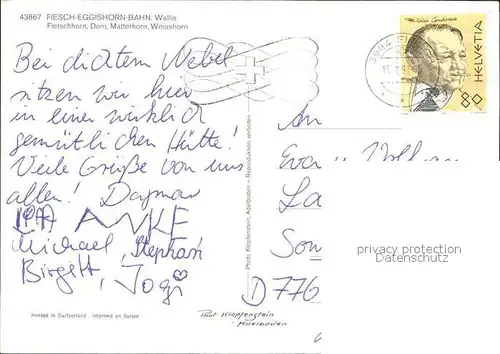 43867 FIESCH-EGGISHORN-BAHN, Wallis
Fletschhorn, Dom, Matterhorn, Weisshorn
Bei dichtem Nebel
sitzen wir hier
in einer wirklich
gemütlichen Hütte!
Viele Grüße von uns
allen! Dagmar
PIA ANKE
Michael, Stephan
Birgett, Jogi
Printed in Switzerland - Imprimé en Suisse
Photo Klopfenstein, Adelboden - Reproduktion verboten
HELVETIA
80
3984
An
Eva
La
Son
D 776
privacy protection
Datenschutz
Phot Klopfenstein
Adelboden